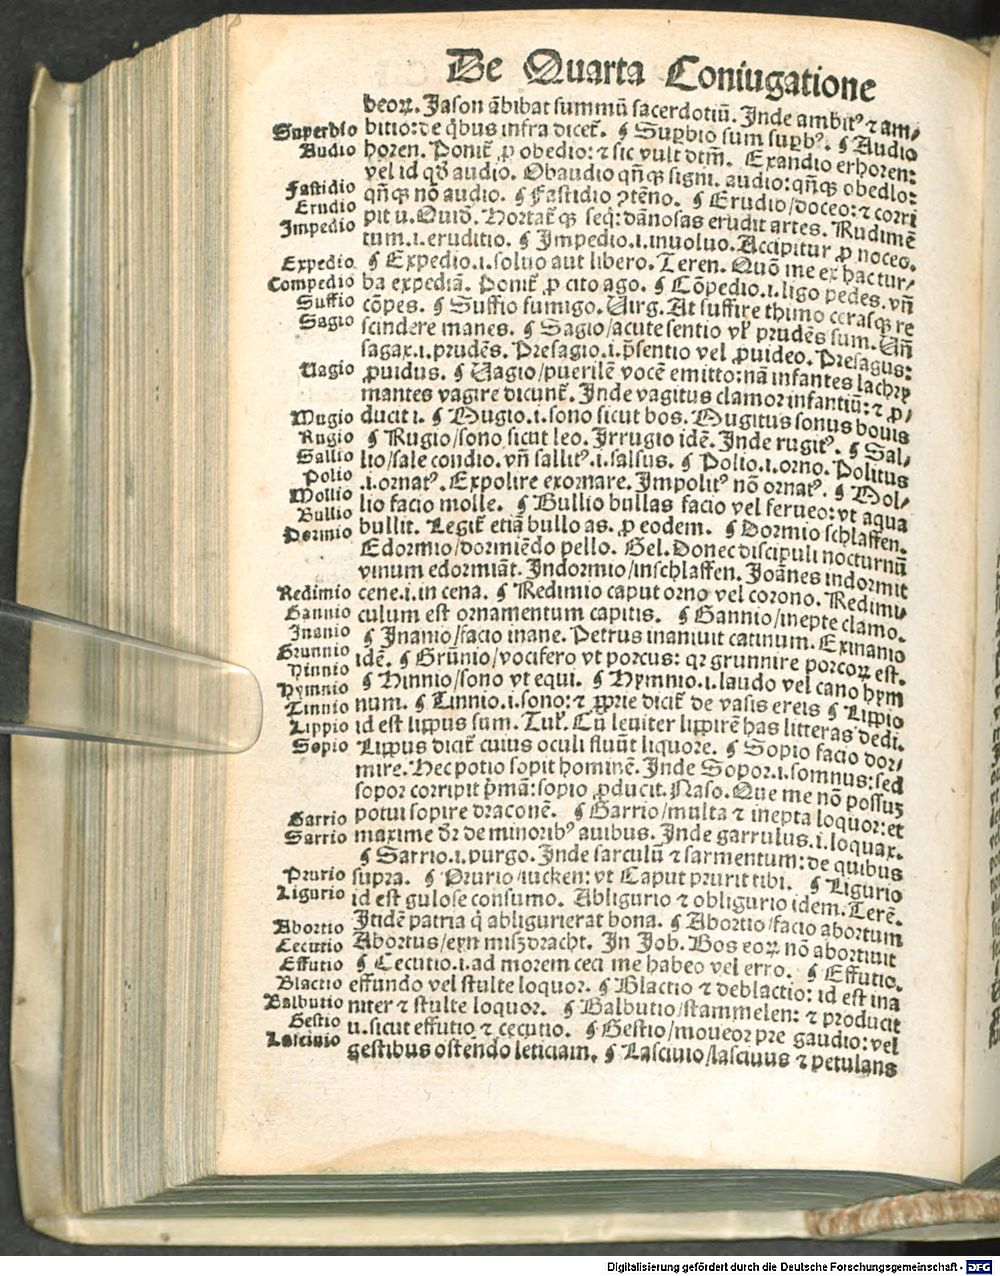 De Quarta Coniugatione
deoꝝ. Jason ābibat summū sacerdotiū. Inde ambitꝰ ⁊ am⸗
Superbio bitio: de q̄bus infra dicet̄. ¶ Suꝑbio sum suꝑbꝰ. ¶ Audio
Audio horen. Ponit̄ ꝓ obedio: ⁊ sic vult dtm̄. Exaudio erhoren:
vel id qđ audio. Obaudio qn̄qꝫ signi. audio: qn̄qꝫ obedio:
Fastidio qn̄qꝫ nō audio. ¶ Fastidio ↄtēno. ¶ Erudio/doceo: ⁊ corri
Erudio pit u. Ouid. Hortat̄ qꝫ seq: dānosas erudit artes. Rudimē
Impedio tum .i. eruditio. ¶ Impedio .i. inuoluo. Accipitur ꝓ noceo.
Expedio ¶ Expedio .i. soluo aut libero. Teren. Quō me ex hac tur⸗
Compedio ba expediā. Ponit̄ ꝓ cito ago. ¶ Cōpedio .i. ligo pedes. vn̄
Suffio cōpes. ¶ Suffio fumigo. Virg. At suffire thimo cerasqꝫ re
Sagio scindere manes. ¶ Sagio/acute sentio vel prudēs sum. Vn̄
sagax .i. prudēs. Presagio .i. p̄sentio vel ꝓuideo. Presagus:
Vagio ꝓuidus. ¶ Vagio/puerilē vocē emitto: nā infantes lachry
mantes vagire dicunt̄. Inde vagitus clamor infantiū: ⁊ ꝓ⸗
Mugio ducit i. ¶ Mugio .i. sono sicut bos. Mugitus sonus bouis
Rugio ¶ Rugio/sono sicut leo. Irrugio idē. Inde rugitꝰ. ¶ Sal⸗
Sallio lio/sale condio. vn̄ sallitꝰ .i. salsus. ¶ Polio .i. orno. Politus
Polio .i. ornatꝰ. Expolire exornare. Impolitꝰ nō ornatꝰ. ¶ Mol⸗
Mollio lio facio molle. ¶ Bullio bullas facio vel ferueo: vt aqua
Bullio bullit. Legit̄ etiā bullo as. ꝓ eodem. ¶ Dormio schlaffen.
Dormio Edormio/dormiēdo pello. Gel. Donec discipuli nocturnū
vinum edormiāt. Indormio/inschlaffen. Joānes indormit
Redimio cene .i. in cena. ¶ Redimio caput orno vel corono. Redimi⸗
Gannio culum est ornamentum capitis. ¶ Gannio/inepte clamo.
Inanio ¶ Inanio/facio inane. Petrus inaniuit catinum. Exinanio
Grunnio idē. ¶ Grūnio/vocifero vt porcus: qꝛ grunnire porcoꝝ est.
Hinnio ¶ Hinnio/sono vt equi. ¶ Hymnio .i. laudo vel cano hym
Hymnio num. ¶ Tinnio .i. sono: ⁊ ꝓprie dicit̄ de vasis ereis ¶ Lippio
Tinnio
Lippio id est lippus sum. Tul. Cū leuiter lippirē has litteras dedi.
Sopio Lippus dicit̄ cuius oculi fluūt liquore. ¶ Sopio facio dor⸗
mire. Hec potio sopit hominē. Inde Sopor .i. somnus: sed
sopor corripit p̄mā: sopio ꝓducit. Naso. Que me nō possuꝫ
potui sopire draconē. ¶ Garrio/multa ⁊ inepta loquor: et
Garrio maxime dr̄ de minoribꝰ auibus. Inde garrulus .i. loquax.
Sarrio ¶ Sarrio .i. purgo. Inde sarculū ⁊ sarmentum: de quibus
Prurio supra. ¶ Prurio iucken: vt Caput prurit tibi. ¶ Ligurio
Ligurio id est gulose consumo. Abligurio ⁊ obligurio idem. Terē.
Itidē patria q̄ abligurierat bona. ¶ Abortio/facio abortum
Abortio Abortus/eyn miszdracht. In Job. Bos eoꝝ nō abortiuit
Cecutio ¶ Cecutio .i. ad morem ceci me habeo vel erro. ¶ Effutio.
Effutio effundo vel stulte loquor. ¶ Blactio ⁊ deblactio: id est ina
Blactio niter ⁊ stulte loquor. ¶ Balbutio/stammelen: ⁊ producit
Balbutio u. sicut effutio ⁊ cecutio. ¶ Gestio/moueor pre gaudio: vel
Gestio gestibus ostēdo leticiam. ¶ Lasciuio/lasciuus ⁊ petulans
Lasciuio
Digitalisierung gefördert durch die Deutsche Forschungsgemeinschaft - DFG